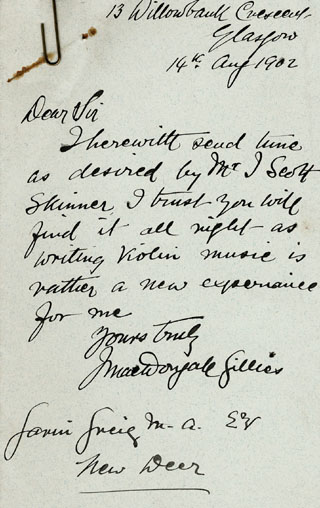 13 Willowbank Crescent
Glasgow
14th Aug 1902
Dear Sir
I herewith send tune
as desired by Mr J Scott
Skinner I trust you will
find it all right as
writing Violin music is
rather a new experience
for me
Yours truly
J MacDougall Gillies
Gavin Greig M.A.
New Deer